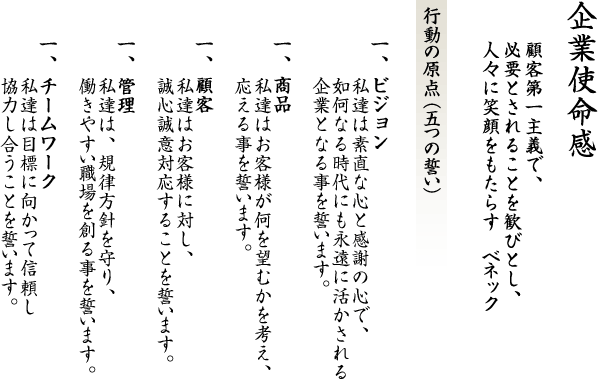 企業使命感
顧客第一主義で、
必要とされることを歓びとし、
人々に笑顔をもたらす　ベネック
行動の原点（五つの誓い）
一、ビジョン
私達は素直な心と感謝の心で、
如何なる時代にも永遠に活かされる
企業となる事を誓います。
一、商品
私達はお客様が何を望むかを考え、
応える事を誓います。
一、顧客
私達はお客様に対し、
誠心誠意対応することを誓います。
一、管理
私達は、規律方針を守り、
働きやすい職場を創る事を誓います。
一、チームワーク
私達は目標に向かって信頼し
協力し合うことを誓います。